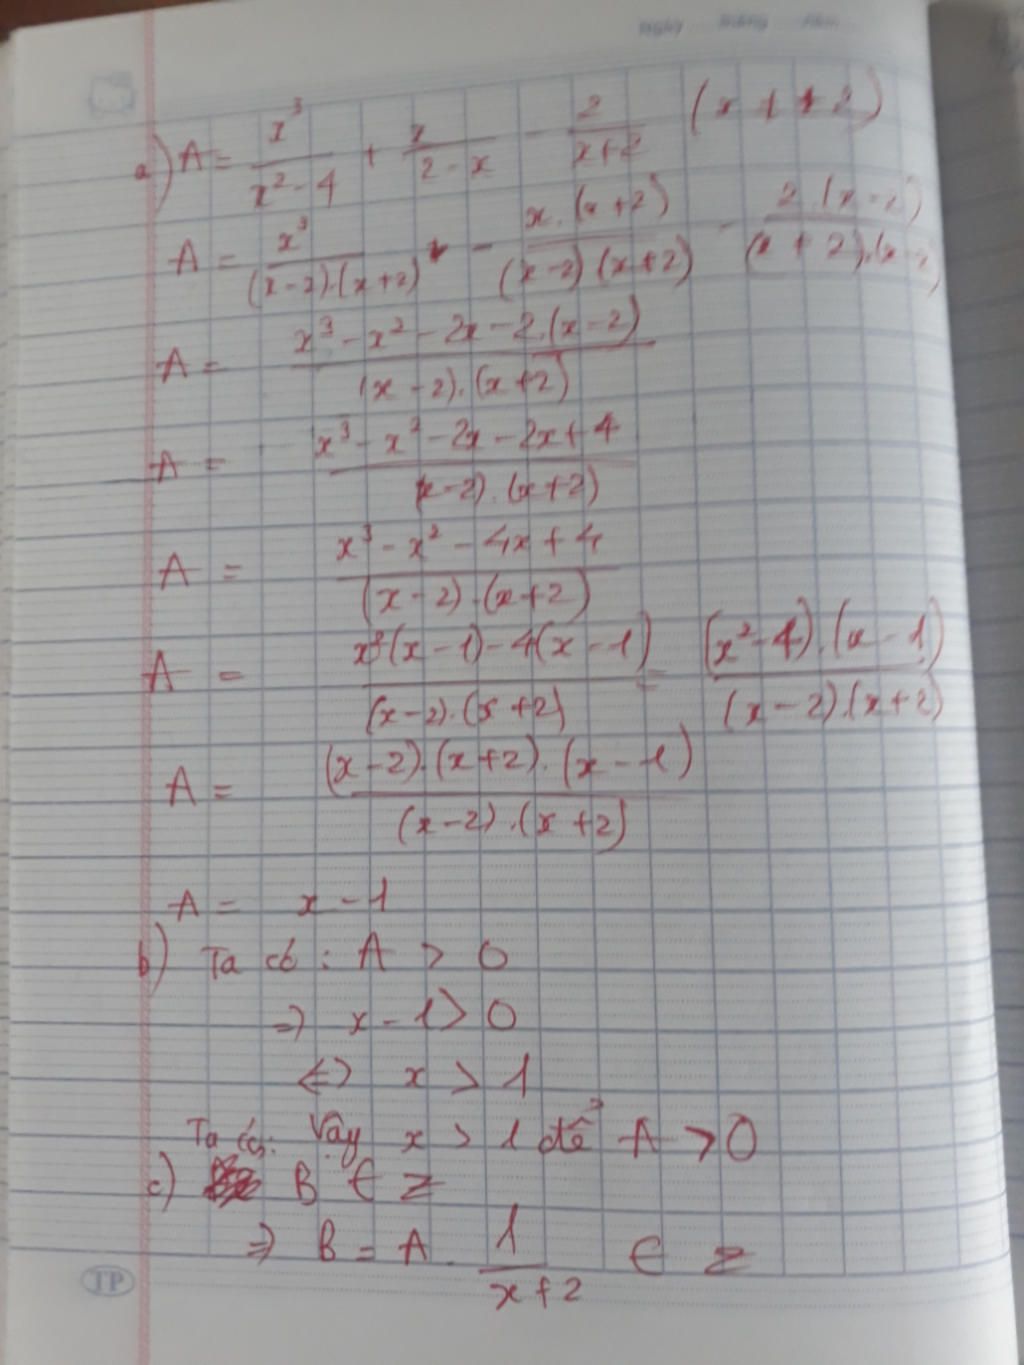 Ngày tháng năm
a) A = x³/(x² - 4) + x/(2 - x) - 2/(x + 2) (x ≠ ± 2)
A = x³/((x - 2).(x + 2)) - x.(x + 2)/((x - 2)(x + 2)) - 2.(x - 2)/((x + 2).(x - 2))
A = (x³ - x² - 2x - 2.(x - 2))/((x - 2).(x + 2))
A = (x³ - x² - 2x - 2x + 4)/((x - 2).(x + 2))
A = (x³ - x² - 4x + 4)/((x - 2).(x + 2))
A = (x²(x - 1) - 4(x - 1))/((x - 2).(x + 2)) = ((x² - 4).(x - 1))/((x - 2).(x + 2))
A = ((x - 2).(x + 2).(x - 1))/((x - 2).(x + 2))
A = x - 1
b) Ta có : A > 0
=> x - 1 > 0
<=> x > 1
Ta có: Vậy x > 1 để A > 0
c) B ∈ Z
=> B = A . 1/(x + 2) ∈ Z
TP